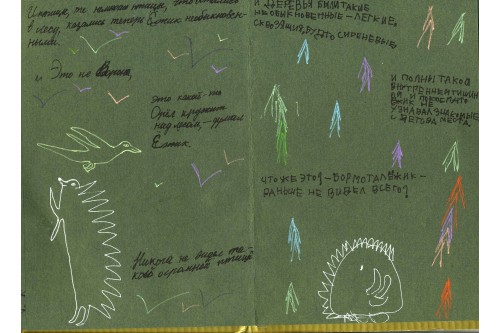 птицы, что остались
в лесу, казались теперь Ёжику необыкновен-
ными.
и Это не Ворона,
это какой-то
Орёл кружит
над лесом, - думал
Ёжик.
Никогда не видел та-
кой огромной птицы
И ДЕРЕВЬЯ БЫЛИ ТАКИЕ
НЕОБЫКНОВЕННЫЕ – ЛЁГКИЕ,
СКВОЗЯЩИЕ, БУДТО СИРЕНЕВЫЕ,
И ПОЛНЫ ТАКОЙ
ВНУТРЕННЕЙ ТИШИН
ЁЖИК НЕ
УЗНАВАЛ ЗНАКОМЫЕ
С ДЕТСТВА МЕСТА.
ЧТО ЖЕ ЭТО? – БОРМОТАЛ ЁЖИК –
РАНЬШЕ НЕ ВИДЕЛ ВСЕГО?